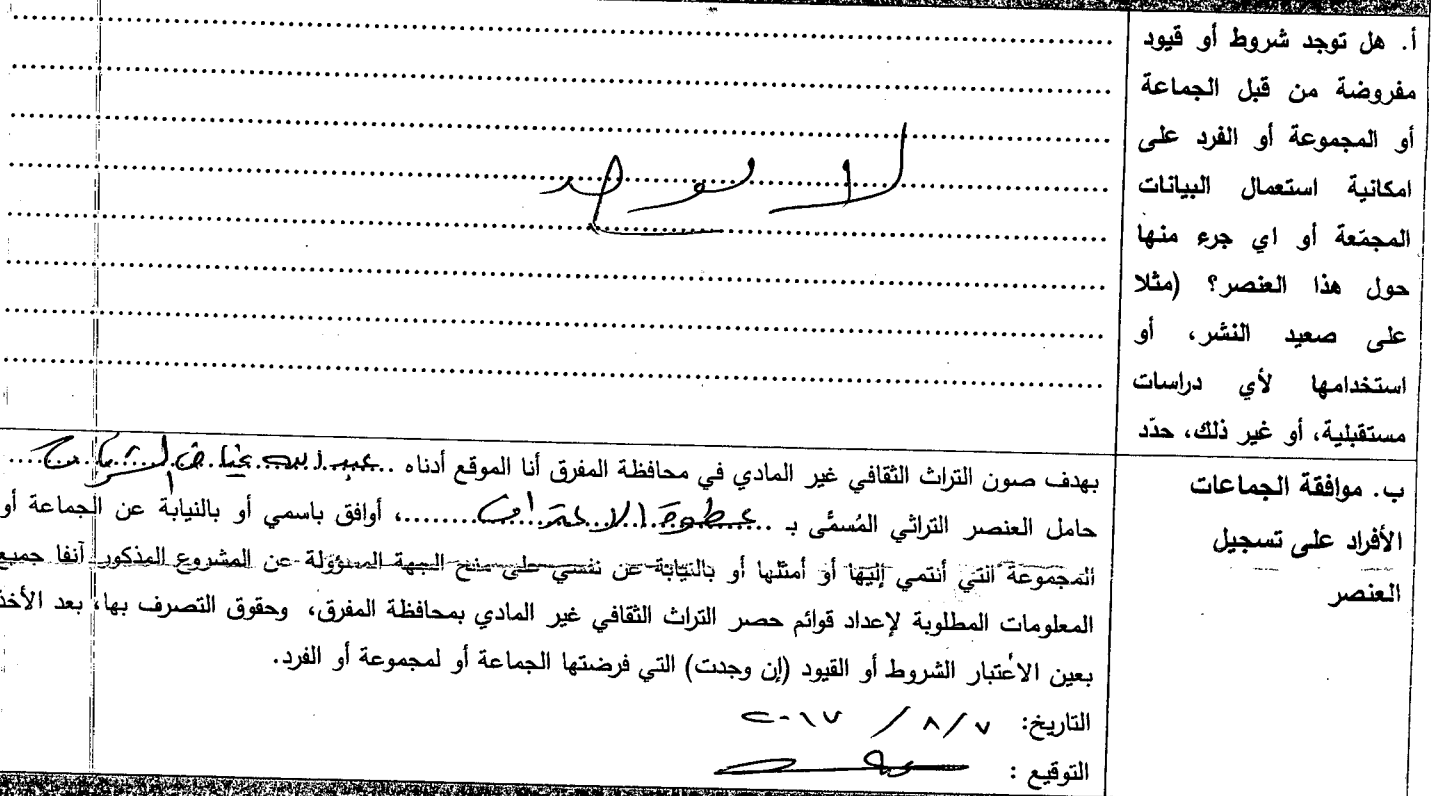 أ. هل توجد شروط أو قيود
مفروضة من قبل الجماعة
أو المجموعة أو الفرد على
امكانية استعمال البيانات
المجمّعة أو اي جرء منها
حول هذا العنصر؟ (مثلا
على صعيد النشر، أو
استخدامها لأي دراسات
مستقبلية، أو غير ذلك، حدّد
لا يوجد
ب. موافقة الجماعات
الأفراد على تسجيل
العنصر
بهدف صون التراث الثقافي غير المادي في محافظة المفرق أنا الموقع أدناه ..عبد الله
حامل العنصر التراثي المُسمَّى بـ ..عطوة الاعتراف........، أوافق باسمي أو بالنيابة عن الجماعة أو
المجموعة التي أنتمي إليها أو أمثلها أو بالنيابة عن نفسي على منح الجهة المسؤولة عن المشروع المذكور آنفا جميع
المعلومات المطلوبة لإعداد قوائم حصر التراث الثقافي غير المادي بمحافظة المفرق، وحقوق التصرف بها، بعد الأخذ
بعين الاعتبار الشروط أو القيود (إن وجدت) التي فرضتها الجماعة أو لمجموعة أو الفرد.
التاريخ: ٧/ ٨/ ٢٠١٧
التوقيع :